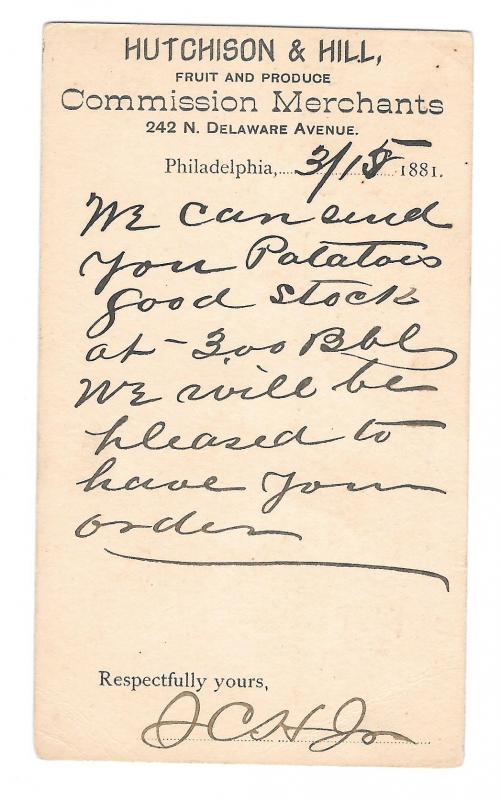 HUTCHISON & HILL,
FRUIT AND PRODUCE
Commission Merchants
242 N. DELAWARE AVENUE.
Philadelphia, 3/15 1881.
We can send
you Potatoes
good stock
at - 3.00 Bbl
We will be
pleased to
have your
order
Respectfully yours,
J C H Jr